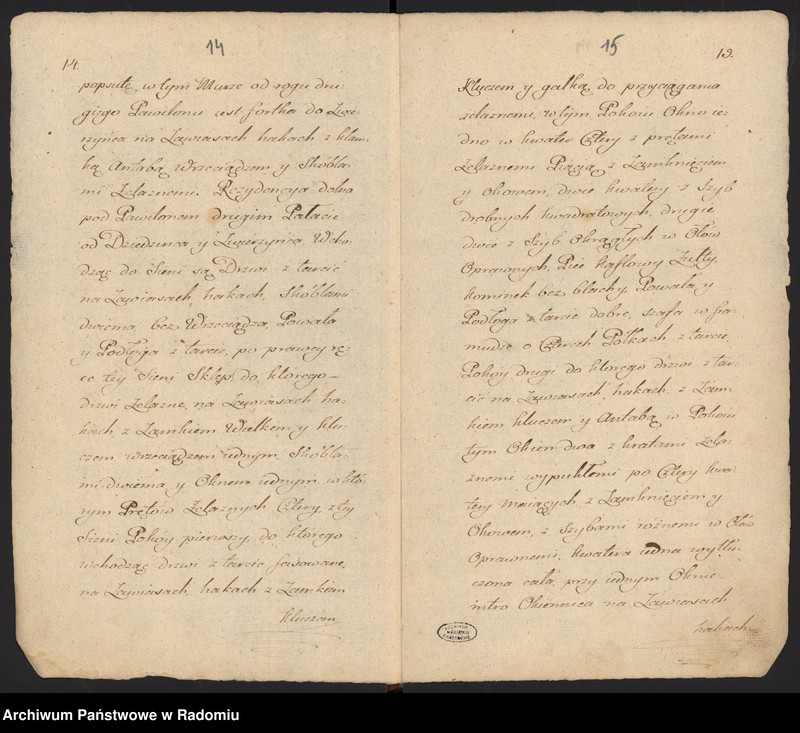 14
14.
popsute, w tym Murze od rogu dru-
giego Pawilonu iest fortka do Zwie-
rzyńca na Zawiasach hakach z klam-
ką Antabą Wrzeciądzem y Skobla-
mi Zelaznemi. Rezydencya dolna
pod Pawilonem drugim Pałacu
od Dziedzinca y Zwierzyńca, Wcho-
dząc do Sieni są Drzwi z tarcic
na Zawiasach, hakach, Skoblami
dwiema, bez Wrzeciądza, Powała
y Podłoga z tarcic, po prawey rę-
ce tey Sieni Sklep, do ktorego
drzwi Zelazne na Zawiasach ha-
kach z Zamkiem Wielkim y klu-
czem wrzeciądzem iednym, Skobla-
mi dwiema y Oknem iednym w któ-
rym Prętow Zelaznych Cztery, z tey
Sieni Pokóy pierwszy, do którego
wchodząc drzwi z tarcic fasowane,
na Zawiasach, hakach z Zamkiem
kluczem
15
19.
Kluczem y gałką do przyciągania
zelaznemi, w tym Pokoiu Okno ie-
dno w kwater Cztery z prętami
Zelaznemi Piącią z Zamknięciem
y Okowem, dwie kwatery z Szyb
drobnych kwadratowych, drugie
dwie z Szyb Okrągłych w Ołów
Oprawnych, Piec kaflowy Zułty,
kominek bez blachy, Powała y
Podłoga z tarcic dobre, szafa w fra-
mudze o Czterech Półkach z tarcic,
Pokóy drugi do ktorego drzwi z tar-
cic na Zawiasach, hakach, z Zam-
kiem kluczem y Antabą, w Pokoiu
tym Okien dwa z kratami zela-
znemi wypukłemi po Cztery kwa-
tery maiących, z Zamknięciem y
Okowem, z Szybami różnemi w Ołów
Oprawnemi, kwatera iedna wytłu-
czona cała, przy iednym Oknie
intro Okiennica na Zawiasach
hakach
Archiwum Państwowe w Radomiu